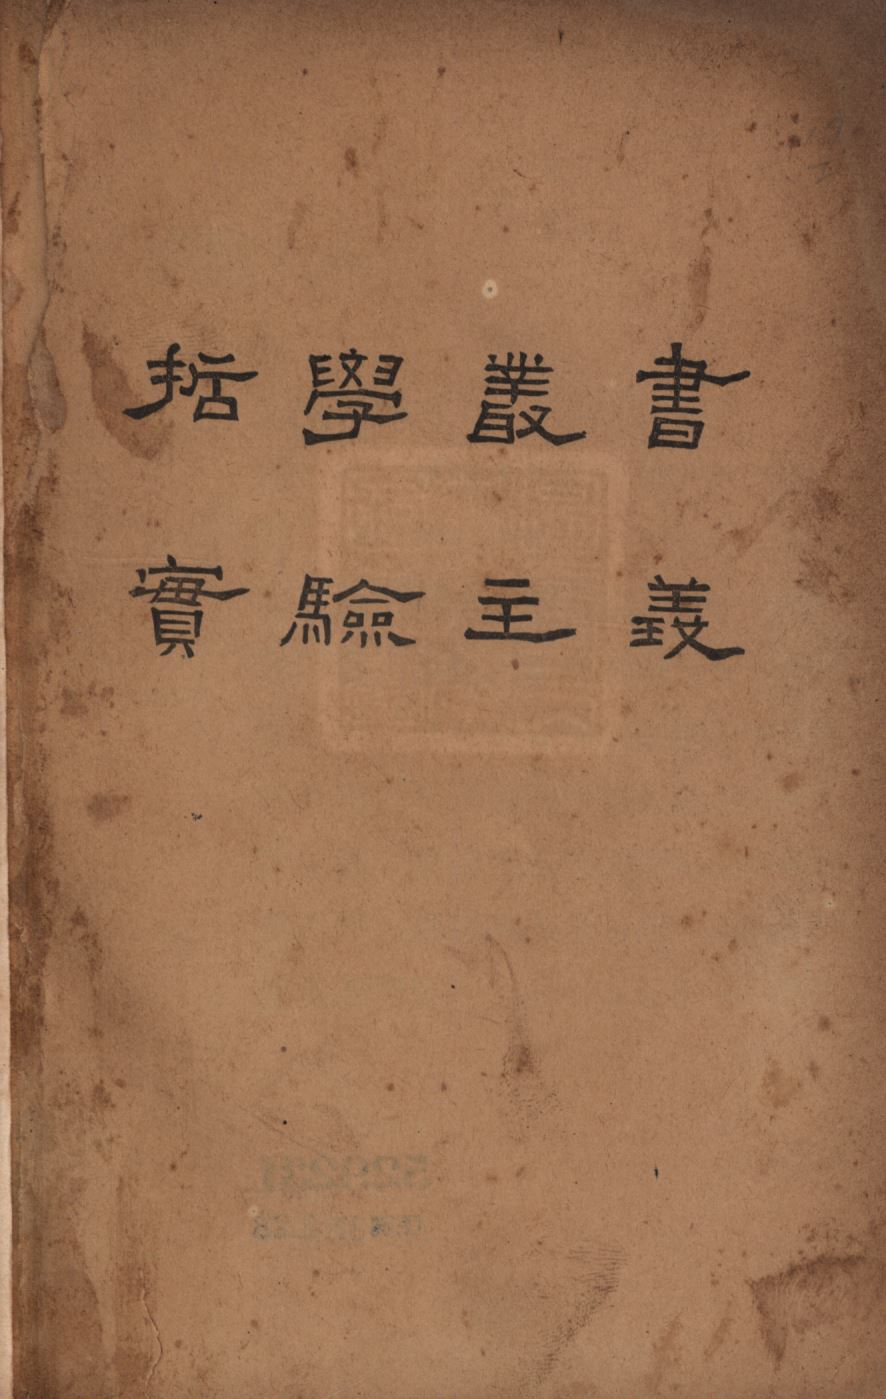 哲學叢書
實驗主義